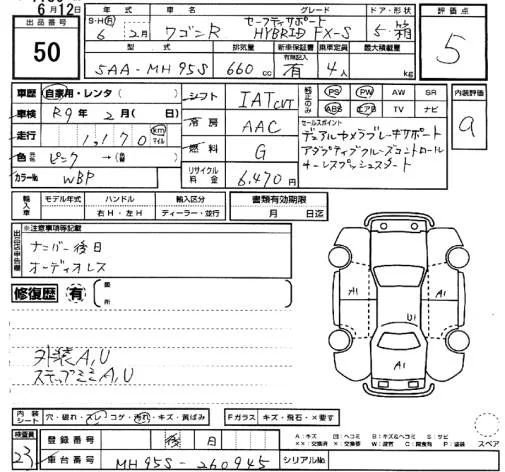 6月12日
出品番号
50
年式
S・H・R
6年2月
車名
ワゴンR
グレード
セーフティサポート
HYBRID FX-S
ドア・形状
5・箱
評価点
5
型式
5AA-MH95S
排気量
660cc
新車保証書
有
乗車定員
4人
最大積載量
kg
車歴 自家用・レンタ( )
車検 R9年2月( 日)
走行 1,170 km マイル
色 元色 ピンク→(
カラーNo WBP
シフト IAT CVT
冷房 AAC
燃料 G
リサイクル料金 6,470円
純正のみ
PS PW AW SR
ABS エアB TV ナビ
セールスポイント
デュアルカメラブレーキサポート
アダプティブクルーズコントロール
キーレスプッシュスタート
内装評価
a
輸入車
モデル年式
年
ハンドル
右H・左H
輸入区分
ディーラー・並行
書類有効期限
月 日迄
※注意事項等記載
出品店申告欄
ナンバー後日
オーディオレス
修復歴 有
箇所
外装A,U
ステップミミA,U
A1
A1
U1
A1
内装シート 穴・破れ・スレ・コゲ・汚れ・キズ・黄ばみ
Fガラス キズ・飛石・×要す
検査員
23
登録番号
後日
車台番号 MH95S-260945
シリアルNo.
A:キズ 凹:ヘコミ B:キズ&ヘコミ S:サビ
××:交換済 ×:交換等 W:波消 C:腐食 P:塗装
スペア